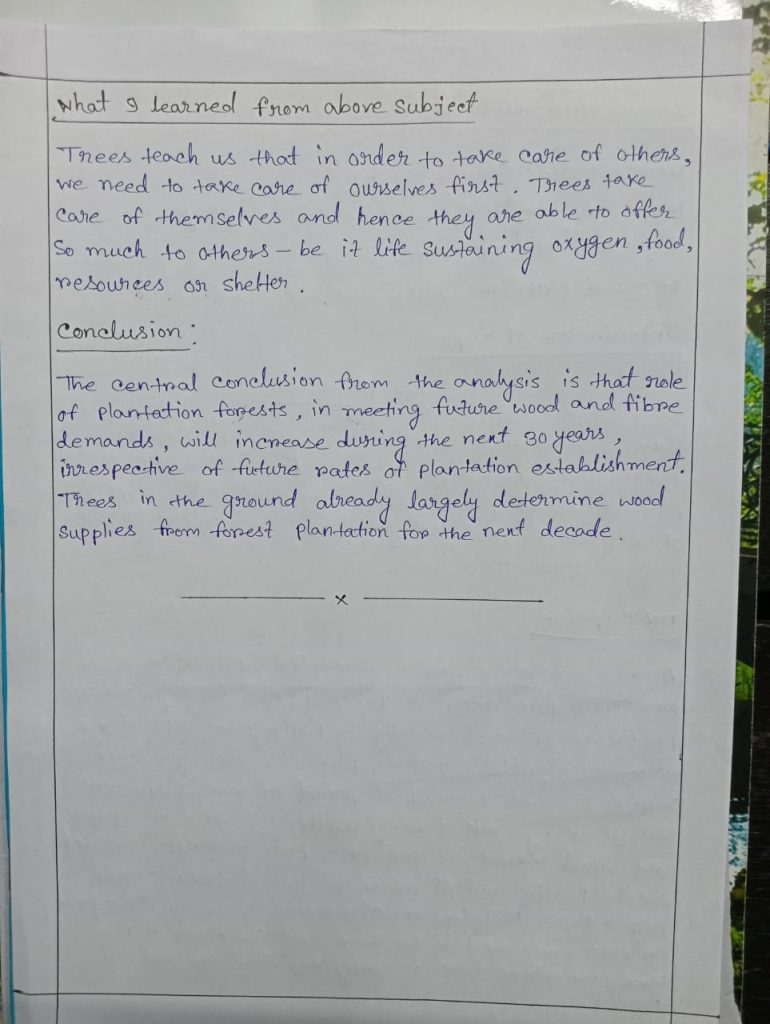 What I learned from above subject
Trees teach us that in order to take care of others,
we need to take care of ourselves first. Trees take
care of themselves and hence they are able to offer
so much to others – be it life sustaining oxygen, food,
resources or shelter.
Conclusion:
The central conclusion from the analysis is that role
of plantation forests, in meeting future wood and fibre
demands, will increase during the next 30 years,
irrespective of future rates of plantation establishment.
Trees in the ground already largely determine wood
supplies from forest plantation for the next decade.
x